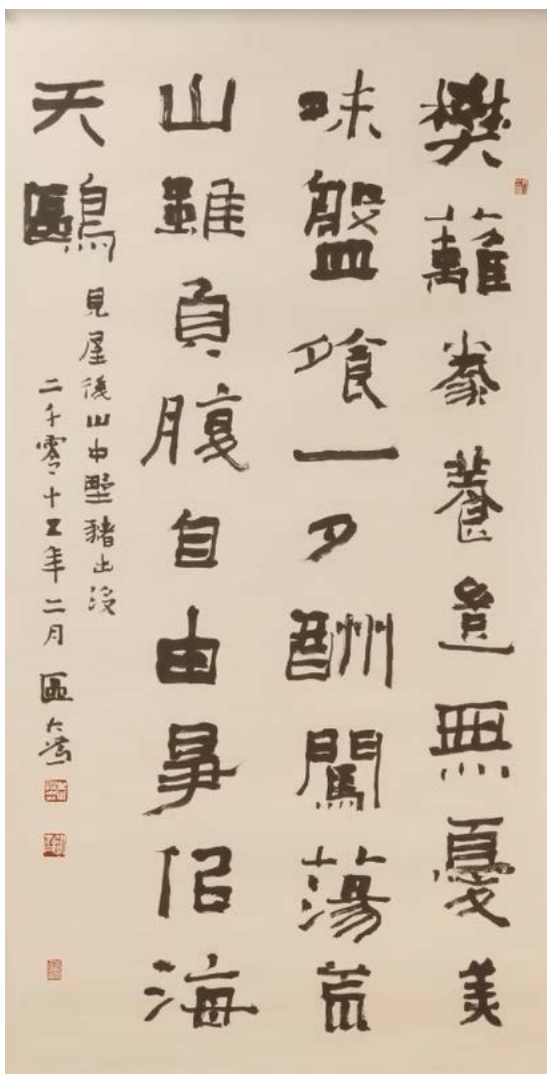 樊蘺豢養無憂美
味盤飧一夕酬闖蕩荒
山雖負腹自由爭佀海
天鷗
見屋後山中野豬出沒
二千零十五年二月 區大為